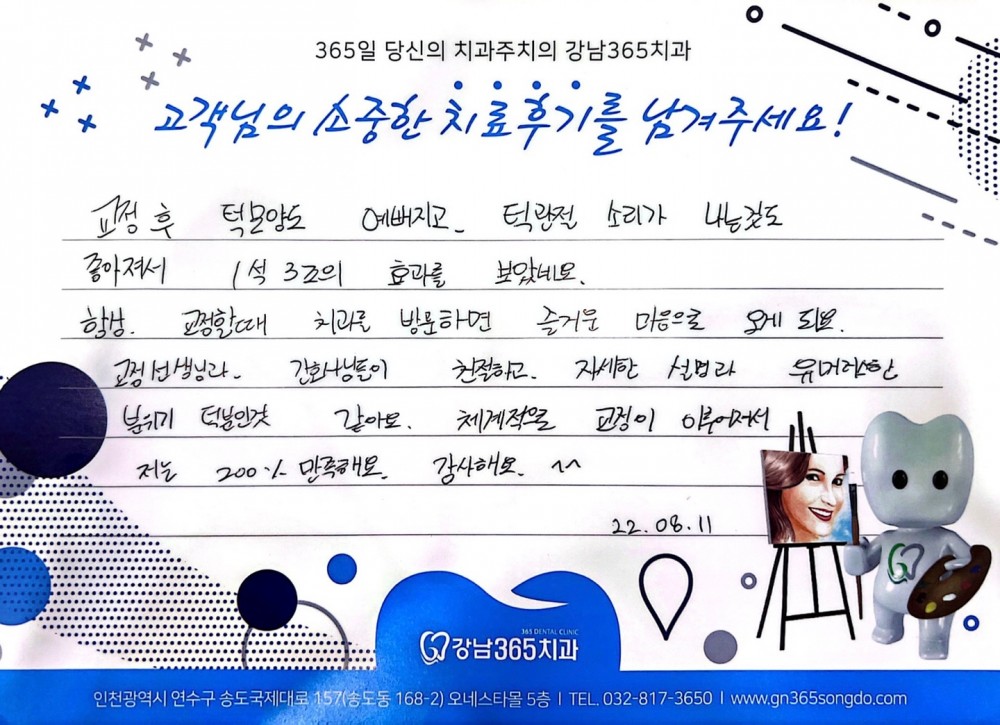 365일 당신의 치과주치의 강남365치과
고객님의 소중한 치료후기를 남겨주세요!
교정 후 턱모양도 예뻐지고. 턱관절 소리가 나는것도
좋아져서 1석 3조의 효과를 보았네요.
항상. 교정할때 치과를 방문하면 즐거운 마음으로 오게 되요.
교정선생님과. 간호사님들이 친절하고. 자세한 설명과 유머러스한
분위기 덕분인것 같아요. 체계적으로 교정이 이루어져서
저는 200% 만족해요. 감사해요. ^^
22.08.11
365 DENTAL CLINIC
강남365치과
인천광역시 연수구 송도국제대로 157(송도동 168-2) 오네스타몰 5층 I TEL. 032-817-3650 I www.gn365songdo.com